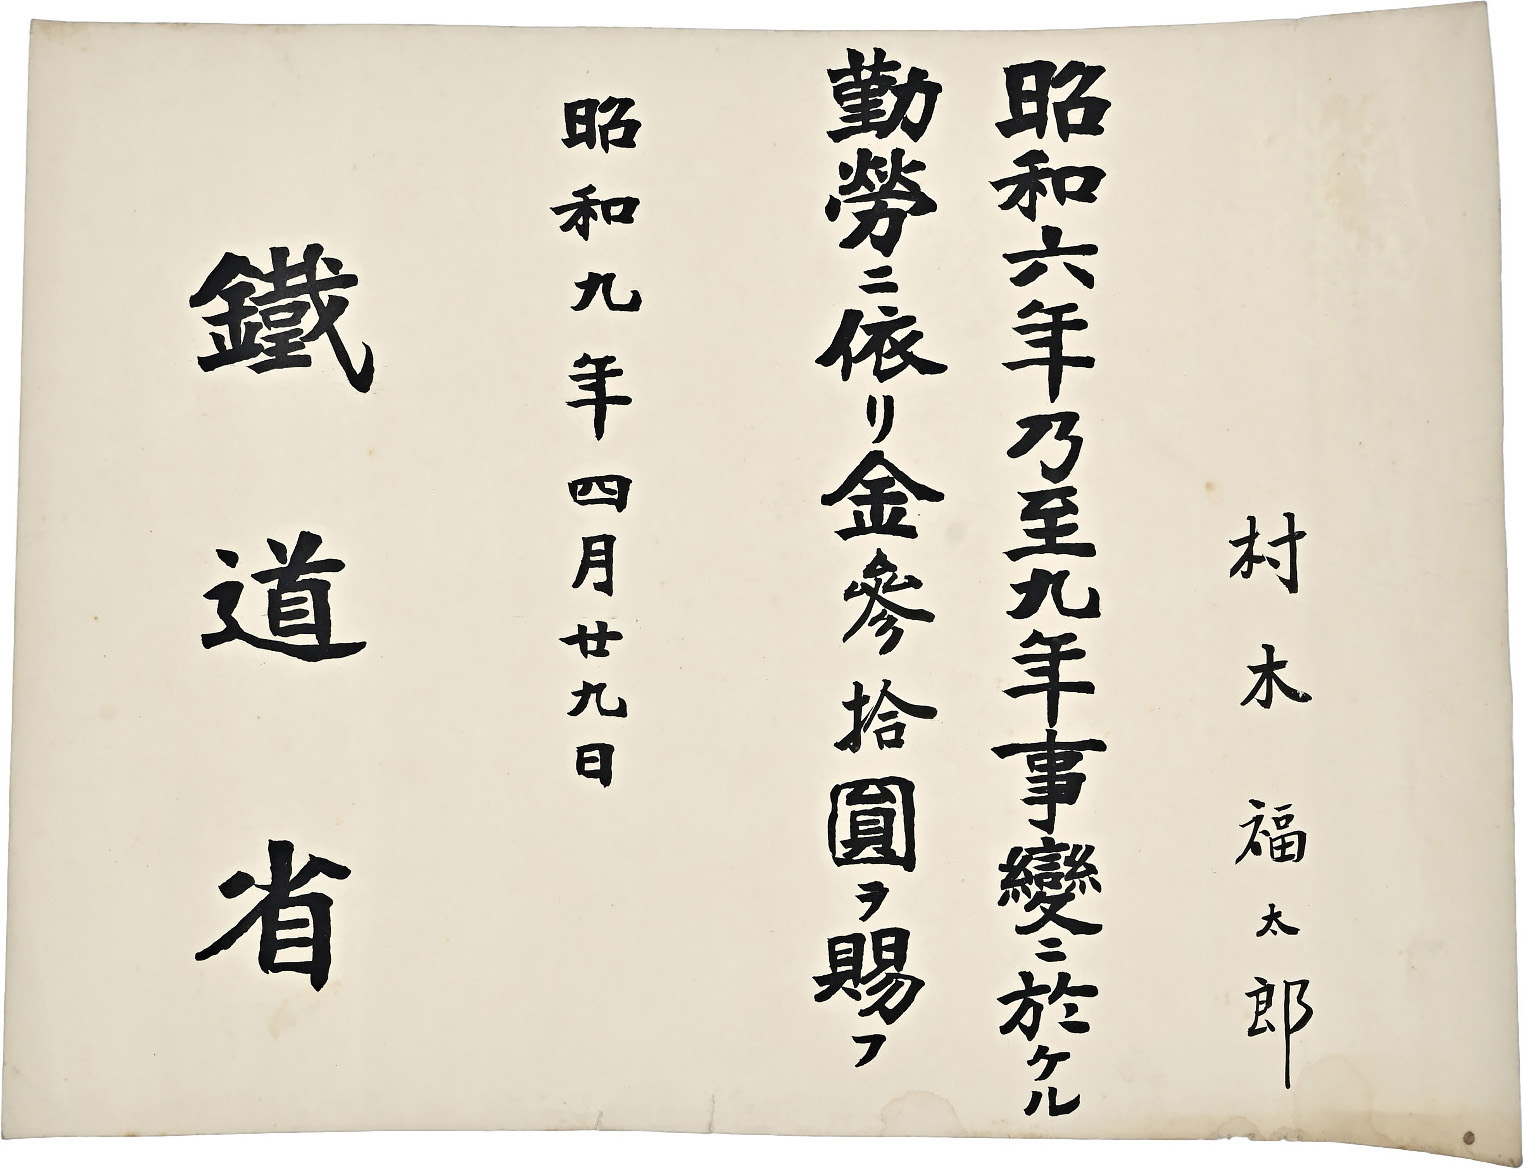 村木福太郎
昭和六年乃至九年事變ニ於ケル
勤勞ニ依リ金參拾圓ヲ賜フ
昭和九年四月廿九日
鐵道省